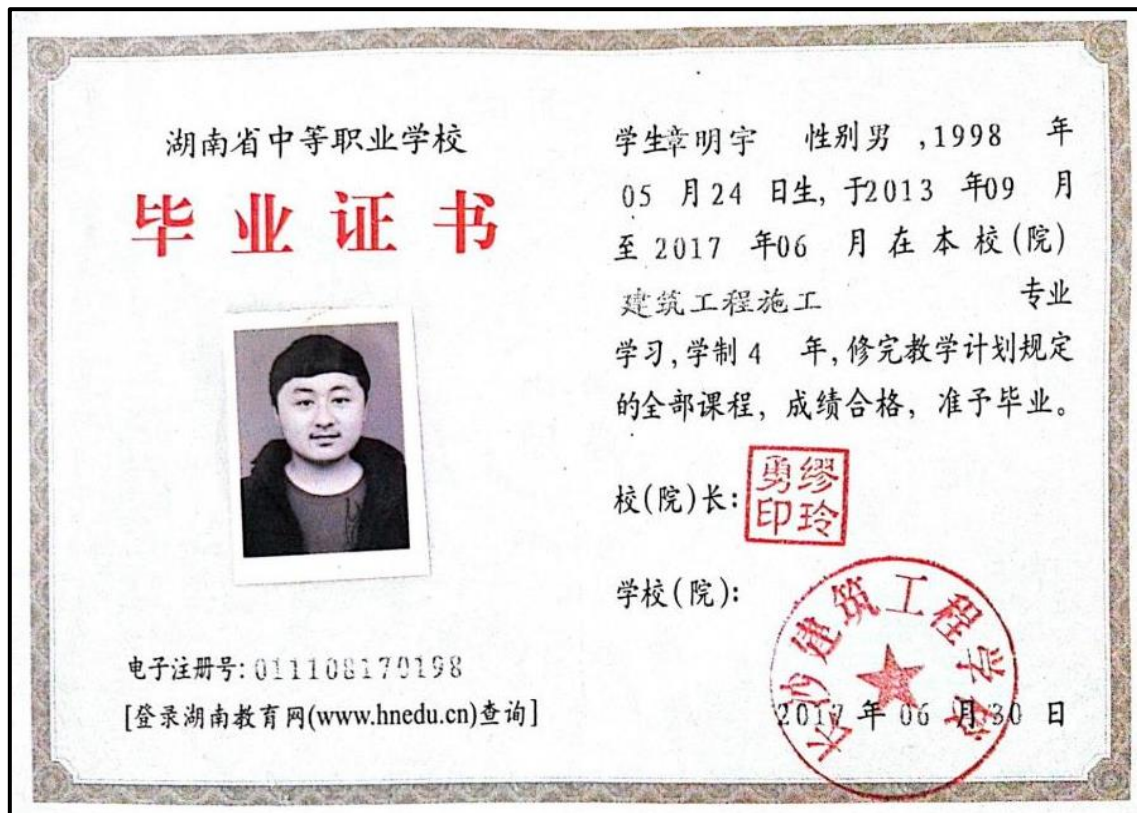 湖南省中等职业学校
毕业证书
电子注册号:011108170198
[登录湖南教育网(www.hnedu.cn)查询]
学生章明宇 性别男 ,1998 年
05 月24 日生, 于2013 年09 月
至 2017 年06 月 在 本 校(院)
建筑工程施工 专业
学习, 学制 4 年, 修完教学计划规定
的全部课程, 成绩合格, 准予毕业。
校(院)长:
缪玲
勇印
学校(院):
长沙建筑工程学校
2017 年 06 月 30 日